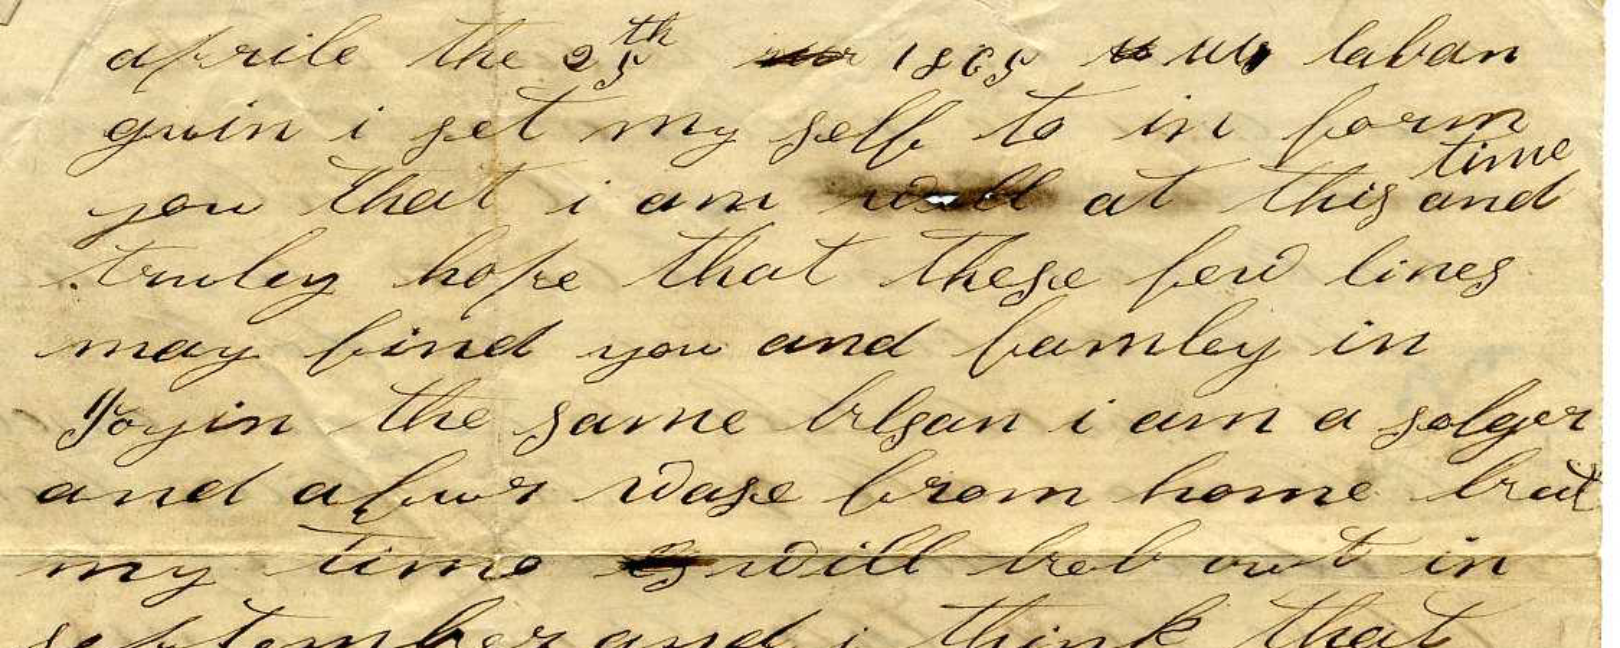 aprile the 25th 1865 laban
gwin i set my self to in form
time
you that i am well at this and
truley hope that these few lines
may find you and famley in
Joyin the same blsan i am a solger
and a fur wase from home but
my time will beb out in
september and i think that